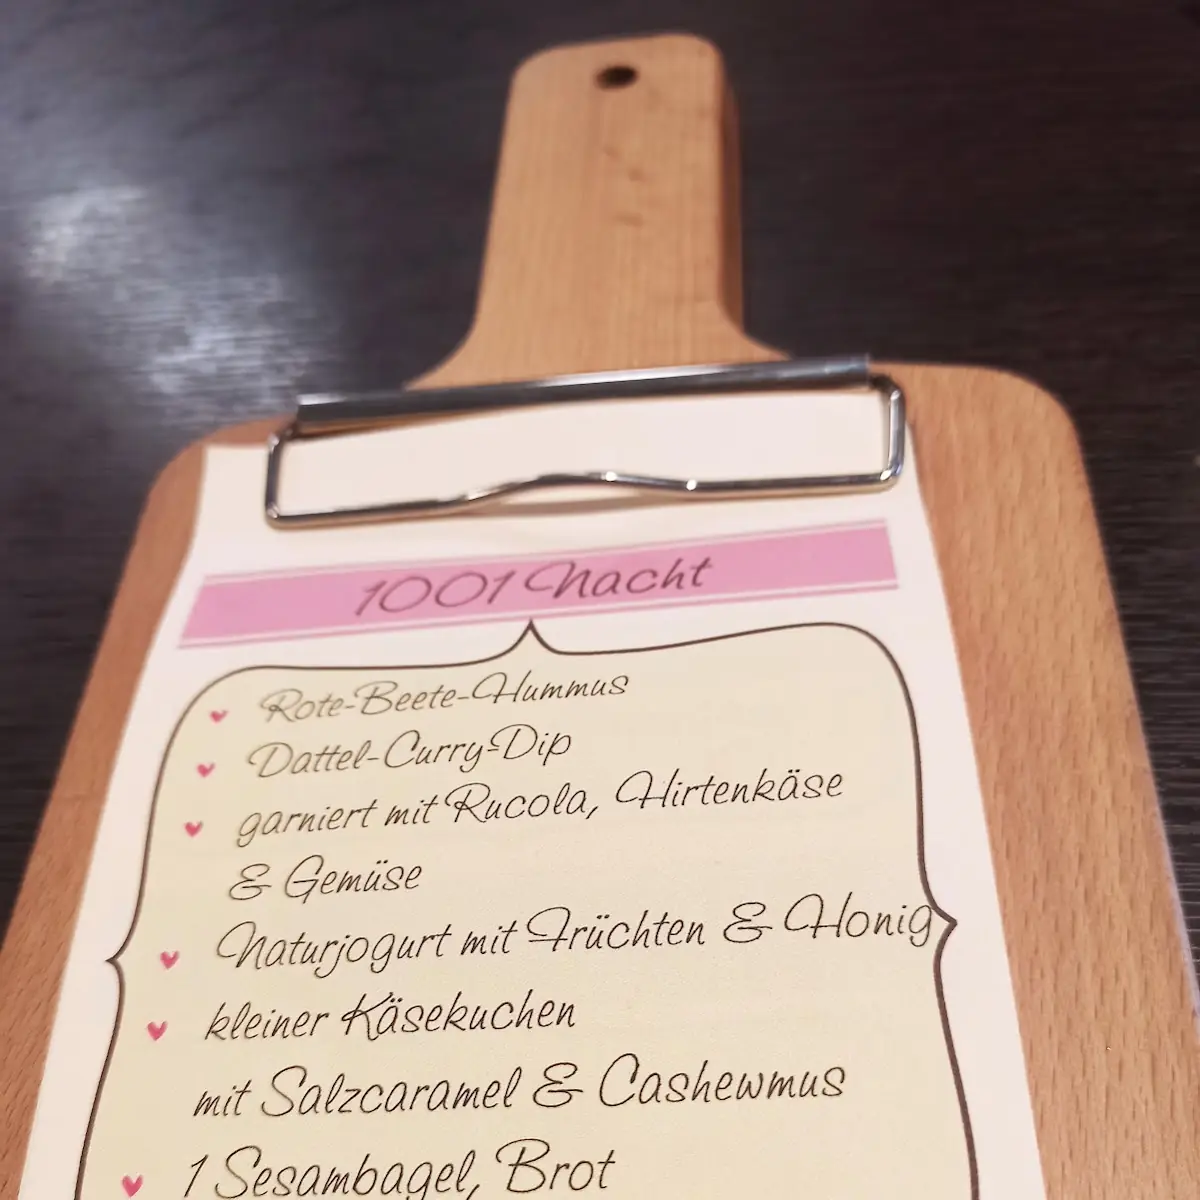 1001 Nacht
Rote-Beete-Hummus
Dattel-Curry-Dip
garniert mit Rucola, Hirtenkäse
& Gemüse
Naturjogurt mit Früchten & Honig
kleiner Käsekuchen
mit Salzcaramel & Cashewmus
1 Sesambagel, Brot